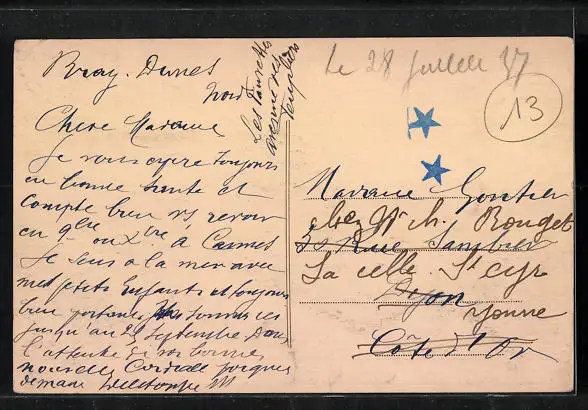 Bray-Dunes
Nord
Les Pâquerettes
avenue des
Templiers
Chere Madame
Je vous espere toujours
en bonne sante et
compte bien vs revoir
en 9bre ou Xbre à Cannes
Je suis a la mer avec
mes petits Enfants et toujours
bien portante, Nous sommes ici
jusqu'au 25 Septembre Dans
l'attente de vos bonnes
nouvelles Cordiale poignée
de main
Le 28 juillet 37
13
Madame Gontier
chez Mr. M. Rouget
Rue
La celle St cyr
Dijon
Yonne
Côte d'Or